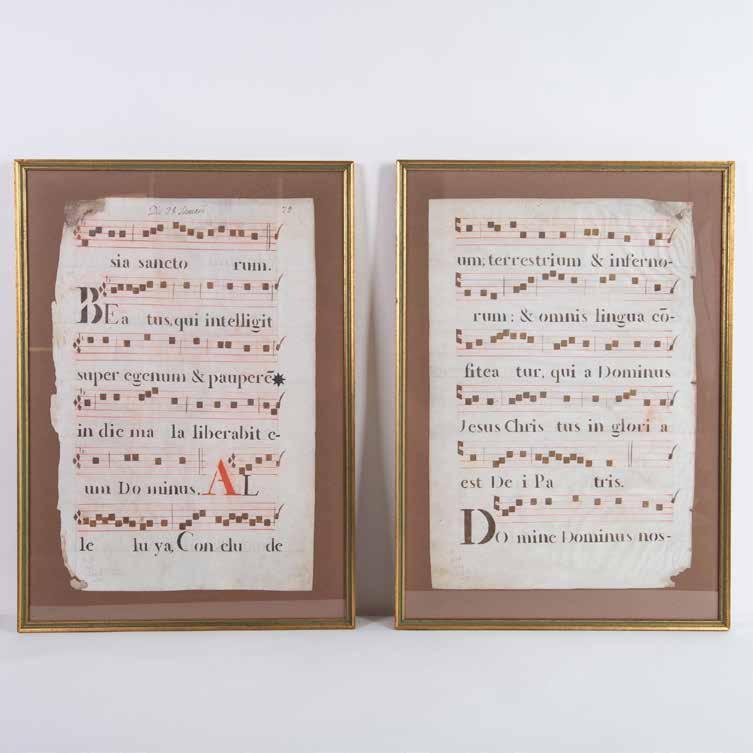 Die 28 Januarii 79
sia sancto rum.
BEa tus, qui intelligit
super egenum & pauperē
in die ma la liberabit e-
um Do minus. AL
le lu ya, Con clu de
um, terrestrium & inferno-
rum: & omnis lingua cō-
fitea tur, qui a Dominus
Jesus Chris tus in glori a
est De i Pa tris.
DO mine Dominus nos-